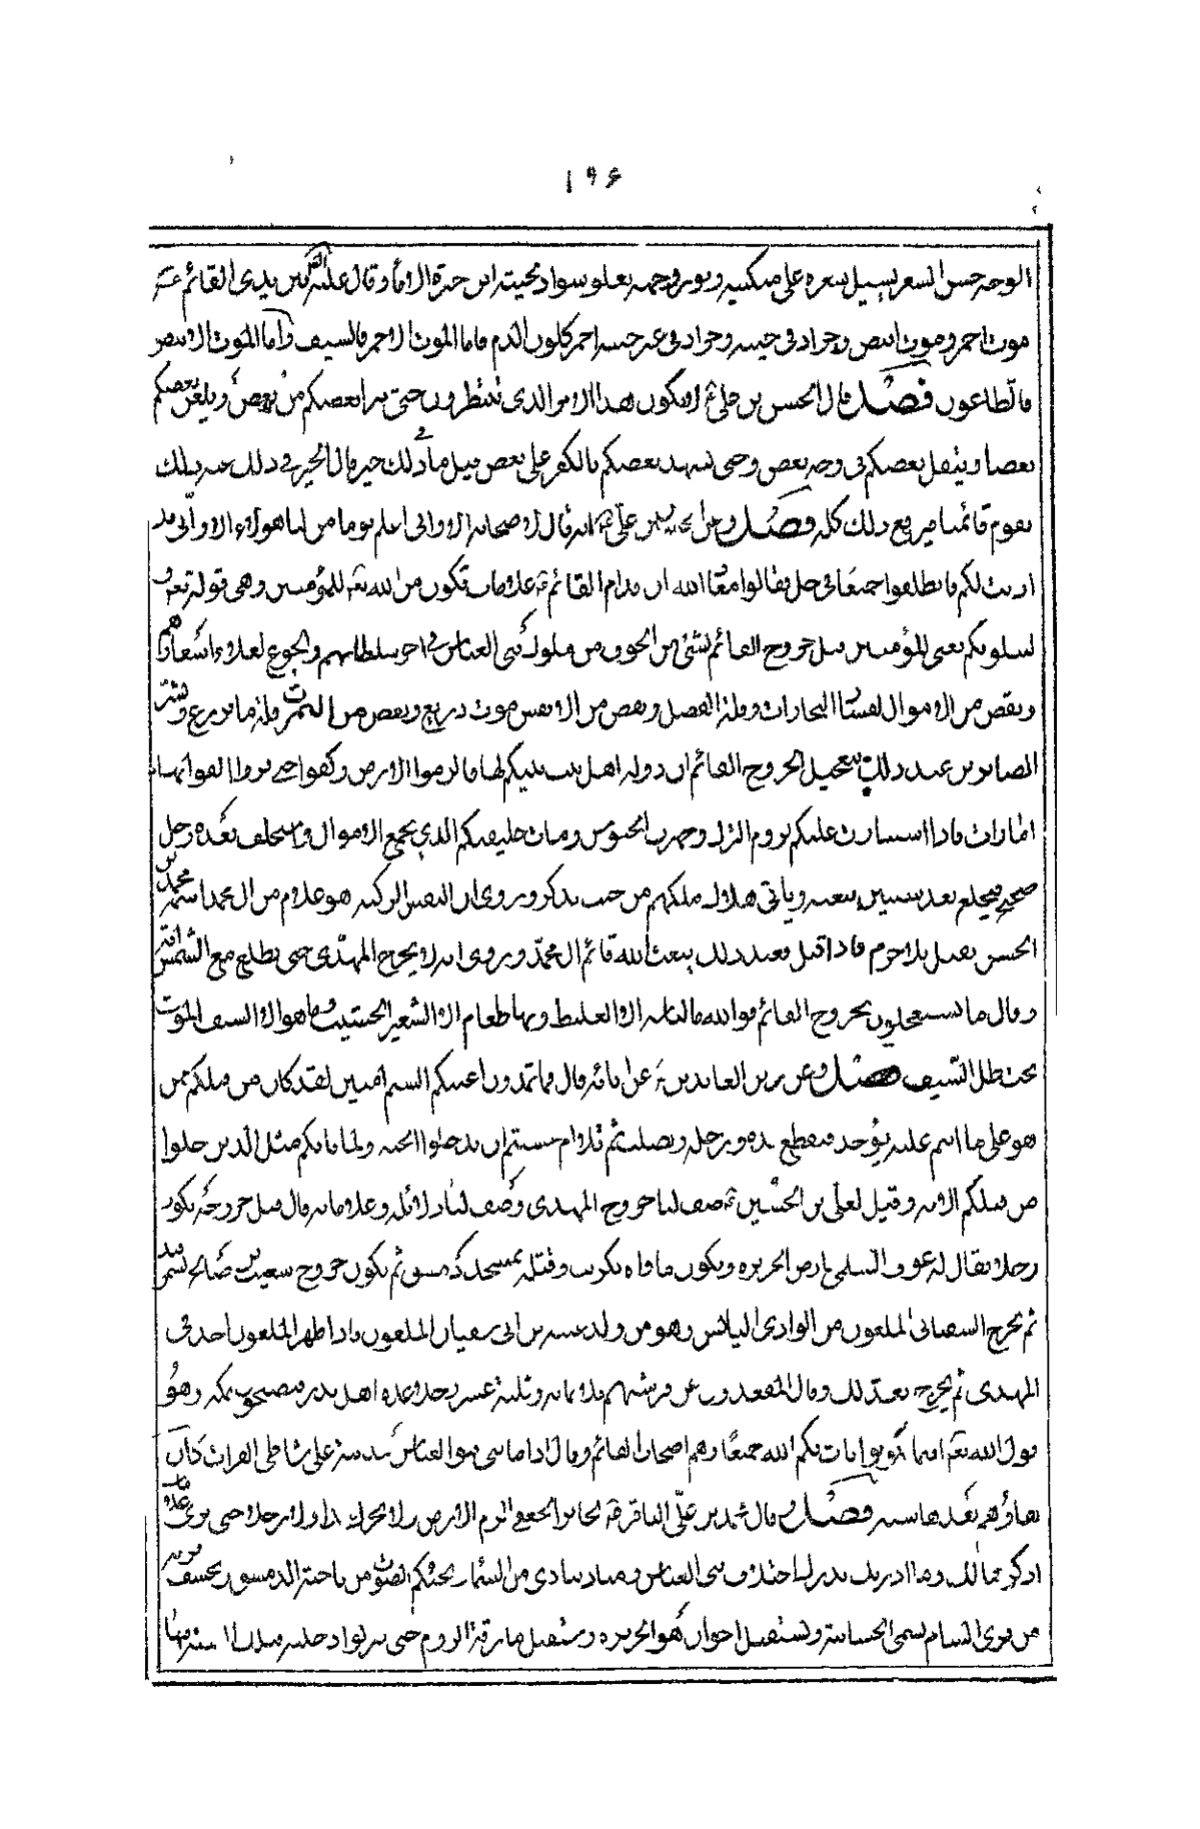 ١٩۶
الوجه حسن الشعر يسيل شعره على منكبيه ونور وجهه يعلو سواد لحيته ابن خيرة الاماء وقال عليه بين يدى القائم
موت احمر وموت ابيض وجراد فى حينه وجراد فى غير حينه احمر كلون الدم فاما الموت الاحمر فالسيف واما الموت الابيض
فالطاعون فصل قال الحسن بن على لا يكون هذا الامر الذى تنتظرون حتى يبرأ بعضكم من بعض ويلعن بعضكم
بعضا ويتفل بعضكم فى وجه بعض وحتى يشهد بعضكم بالكفر على بعض قيل ما فى ذلك خير قال الخير فى ذلك عند ذلك
يقوم قائمنا فيرفع ذلك كله فصل وعن الحسين بن على انه قال لاصحابه الا وانى اعلم يوما من لنا هؤلاء الا وانى قد
اذنت لكم فانطلقوا جميعا فى حل فقالوا معاذ الله ان قدام القائم علامات تكون من الله للمؤمنين وهى قوله
لنبلونكم يعنى المؤمنين قبل خروج القائم بشئ من الخوف من ملوك بنى العباس فى اخر سلطانهم والجوع لغلاء اسعارهم
ونقص من الاموال لفساد التجارات وقلة الفضل ونقص من الانفس موت ذريع ونقص من الثمرات قلة ما يزرع وبشر
الصابرين عند ذلك بتعجيل خروج القائم ان دولة اهل بيت نبيكم لها فالزموا الارض وكفوا حتى تروا
امارات فاذا استثارت عليكم الروم الترك وجهزت الجيوش ومات خليفتكم الذى يجمع الاموال واستخلف بعده رجل
صحيح فيخلع بعد سنين بيعته وياتى هلاك ملكهم من حيث بدا وروى ان النفس الزكية هو غلام من ال محمد اسمه محمد بن
الحسن يقتل بلا جرم فاذا قتل فعند ذلك يبعث الله قائم ال محمد وروى انه لا يخرج المهدى حتى يطلع مع الشمس اية
وقال ما تستعجلون بخروج القائم فوالله ما لباسه الا الغليظ وما طعام الا الشعير الجشيب وما هو الا السيف الموت
تحت ظل السيف فصل وعن زين العابدين عن ابائه قال فما تمدون اعينكم الستم امنين لقد كان من قبلكم ممن
هو على ما انتم عليه يؤخذ فيقطع يده ورجله ويصلب ثم تلا ام حسبتم ان تدخلوا الجنة ولما ياتكم مثل الذين خلوا
من قبلكم الاية وقيل لعلى بن الحسين صف لنا خروج المهدى وصف لنا دلائله وعلاماته قال قبل خروجه يكون
رجلا يقال له عوف السلمى بارض الجزيرة ويكون ماواه تكريت وقتله بمسجد دمشق ثم يكون خروج شعيب بن صالح
ثم يخرج السفيانى الملعون من الوادى اليابس وهو من ولد عتبة بن ابى سفيان الملعون فاذا ظهر الملعون اختفى
المهدى ثم يخرج بعد ذلك وقال المفقدون عن فرشهم ثلاثمائة وثلثة عشر رجلا عدة اهل بدر فيصبحون بمكة وهو
قول الله اينما تكونوا يات بكم الله جميعا وهم اصحاب القائم وقال اذا ما بنى بنو العباس مدينة على شاطى الفرات كان
بقاؤهم بعدها سنة فصل وقال محمد بن على الباقر لجابر الجعفى الزم الارض ولا تحرك يدا ولا رجلا حتى ترى علامات
اذكرها لك وما ادريك تدرك اختلاف بنى العباس ومناد ينادى من السماء يجيئكم الصوت من ناحية الدمشق ويخسف قرية
من قرى الشام يسمى الجابية وستقبل اخوان الجزيرة وستقبل مارقة الروم حتى